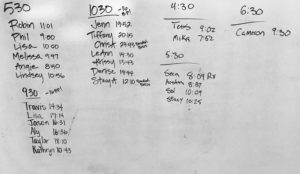 530
Robin 11:01
Phil 9:00
Lisa 10:00
Melissa 9:47
Angie 8:50
Lindsey 10:56
930
Travis 14:34
Lisa 17:14
Jason 16:31
Aly 16:36
Taylor 18:10
Kathryn 10:43
1030
Jenn 19:52
Tiffany 20:15
Chris 24:43
LeAnn 14:30
Krissy 13:43
Denise 19:44
Stacy 12:10
4:30
Tess 9:02
Mike 7:52
5:30
Sean 8:09 Rx
Austin 8:37
Sol 10:09
Stacy 10:25
6:30
Cameron 9:30